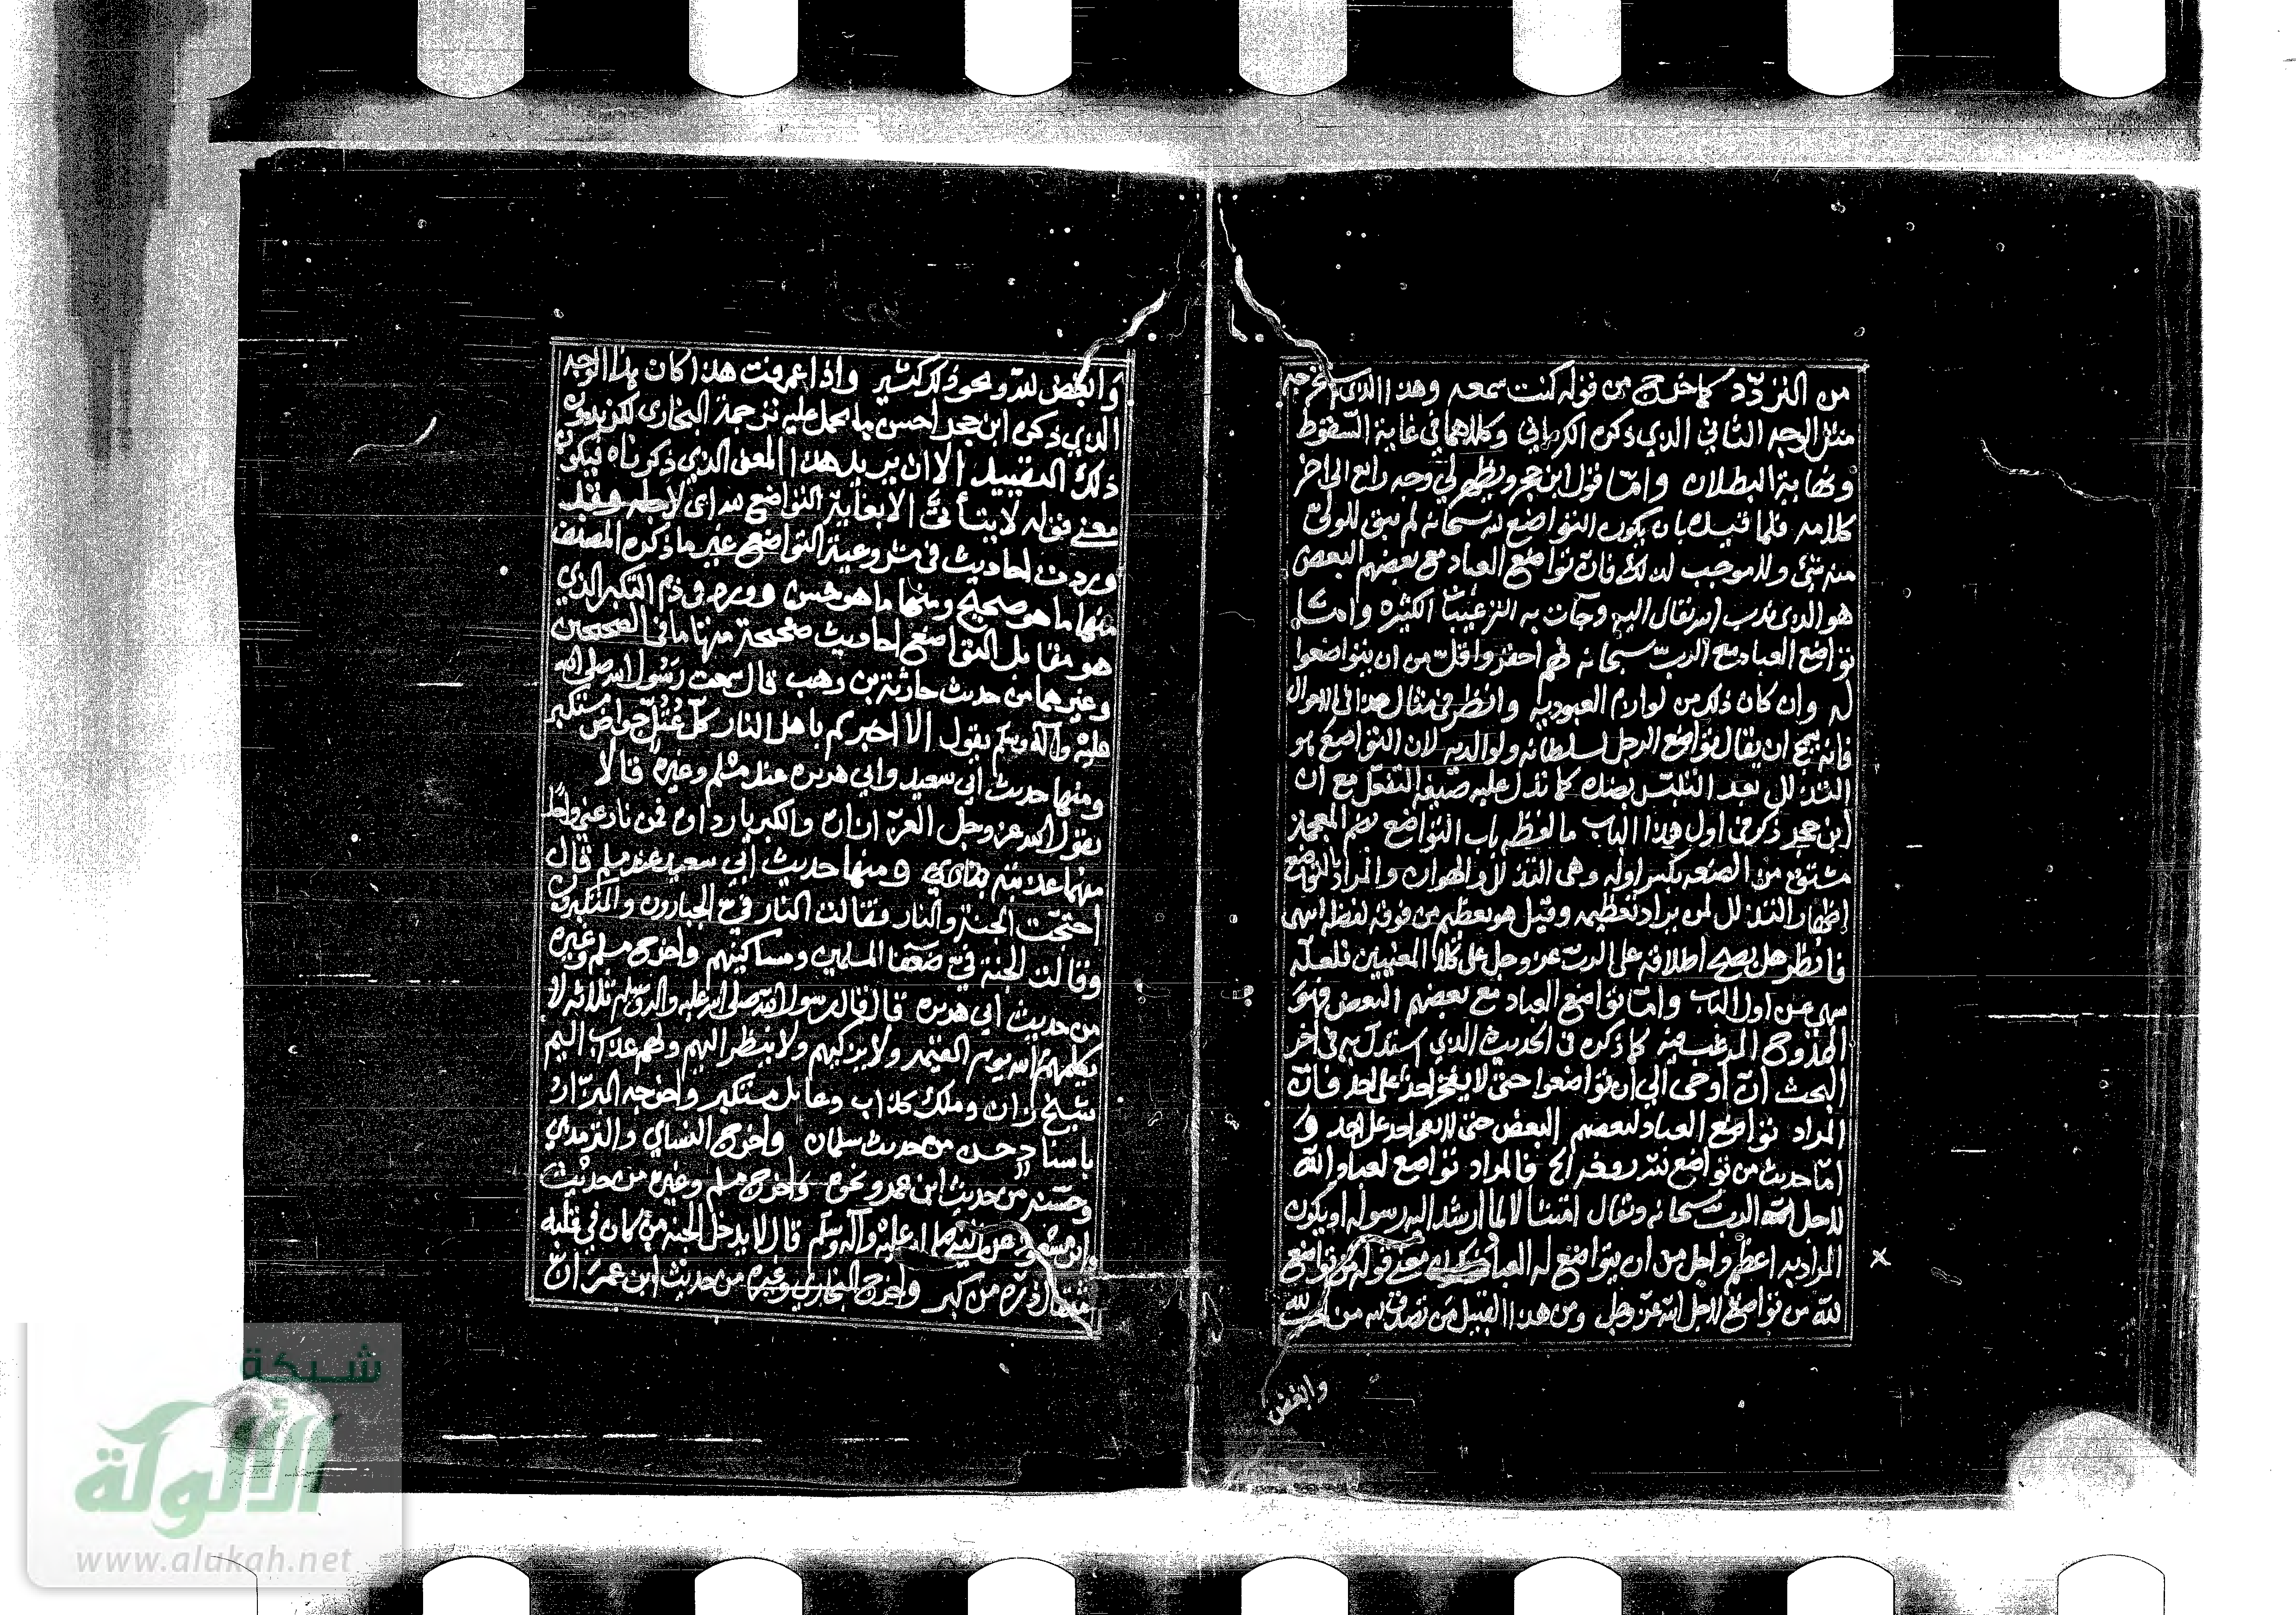 من التردد كما خرج من قوله كنت سمعه وهذا الذي خرجه
مثل الوجه الثاني الذي ذكره الكرماني وكلاهما في غاية السقوط
ونهاية البطلان وامّا قول ابن حجر ويظهر لي وجه رابع الى اخر
كلامه فلما قيده بان يكون التواضع لله سبحانه لم يبق للوليّ
منه شئ ولا موجب لذلك فانّ تواضع العباد مع بعضهم البعض
هو الذي ندب الله تعالى اليه وجآت به الترغيبات الكثيرة وامّا
تواضع العباد مع الربّ سبحانه فهم احقر واقلّ من ان يتواضعوا
له وان كان ذلك من لوازم العبودية وانظر في مثال هذا في الاحوال
فانه يقبح ان يقال تواضع الرجل لسلطانه ولوالديه لان التواضع هو
التذلل بعد التلبّس بضده كما تدل عليه صيغة التفعّل مع ان
ابن حجر ذكر في اول هذا الباب ما لفظه باب التواضع بضم المعجمة
مشتق من الضعه بكسر اوله وهى التذلل والهوان والمراد بالتواضع
إظهار التذلل لمن يراد تعظيمه وقيل هو تعظيم من فوقه لفضله انتهى
فانظر هل يصح اطلاقه على الربّ عز وجل على كلا المعنيين فلعلّه
سهى عن اول الباب وامّا تواضع العباد مع بعضهم البعض فهو
الممدوح المرغب فيه كما ذكره في الحديث الذي استدل به في اخر
البحث انّ اوحى الي ان تواضعوا حتى لا يفخر احد على احد فانّ
المراد تواضع العباد لبعضهم البعض حتى لا يفخر احد على احد و
امّا حديث من تواضع لله رفعه الخ فالمراد تواضع لعباد الله
لاجل الربّ سبحانه وتعالى امتثالا لما ارشد اليه رسوله او يكون
المراد به اعظم واجل من أن يتواضع له العباد معنى قوله من تواضع
لله من تواضع لاجل الله عزّ وجل ومن هذا القبيل من تصدق لله من احب لله
وابغض
وابغض لله ونحو ذلك كثير واذا عرفت هذا كان هذا الوجه
الذي ذكره ابن حجر احسن ما يحمل عليه ترجمة البخاري لكن بدون
ذلك التقييد الا ان يريد هذا المعنى الذي ذكرناه فيكون
معنى قوله لا يتأتّى الا بغاية التواضع لله اى لاجله وقد
وردت احاديث في مشروعية التواضع غير ما ذكره المصنف
منها ما هو صحيح ومنها ما هو حسن وورد في ذم التكبر الذي
هو مقابل التواضع احاديث صحيحة منها ما في الصحيحين
وغيرهما من حديث حارثة بن وهب قال سمعت رسول الله صلى الله
عليه وآله وسلم يقول الا اخبركم باهل النار كلّ عُتُلّ جواض مستكبر
ومنها حديث ابي سعيد وابي هريره عند مسلم وغيره قالا
يقول الله عز وجل العزّ ازاره والكبرياء رداوه فمن نازعني واحدا
منهما عذبته ومنها حديث ابي سعيد عند مسلم قال
احتجّت الجنة والنار فقالت النار فيّ الجبارون والمتكبرون
وقالت الجنة فيّ ضعفا المسلمين ومساكينهم واخرج مسلم وغيره
من حديث ابي هريره قال قال رسول الله صلى الله عليه وآله وسلم ثلاثه لا
يكلمهم الله يوم القيمه ولا يزكيهم ولا ينظر اليهم ولهم عذاب اليم
شيخ زان وملك كذاب وعايل مستكبر واخرجه البزّار
باسناد حسن من حديث سلمان واخرج النساي والترمذي
وحسّنه من حديث ابن عمرو نحوه واخرج مسلم وغيره من حديث
ابن مسعود عن النبي صلى الله عليه وآله وسلم قال لا يدخل الجنة من كان في قلبه
مثقال ذرّه من كبر واخرج البخاري وغيره من حديث ابن عمر ان
شبكة
الألوكة
www.alukah.net